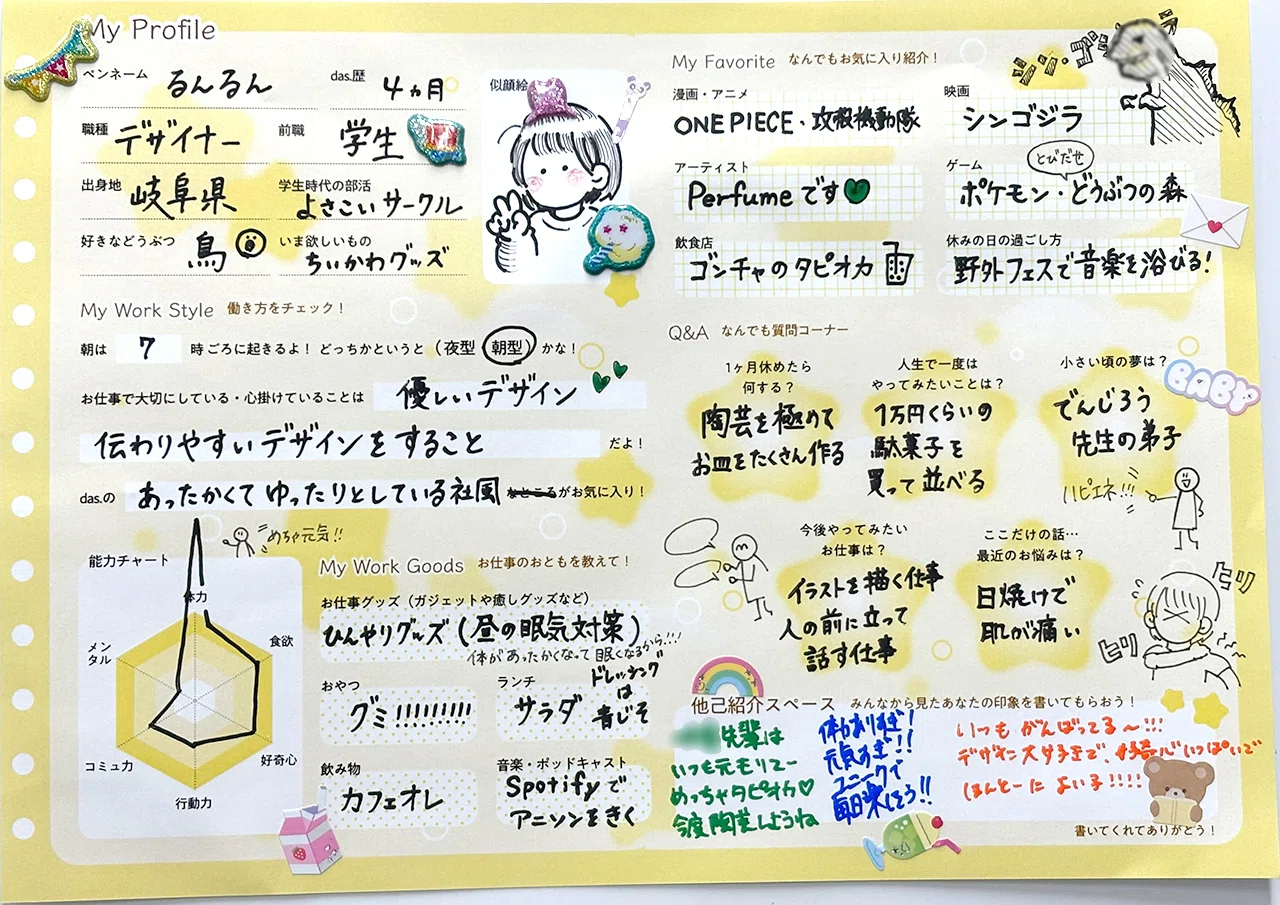 My Profile
ペンネーム るんるん
das.歴 4ヵ月
職種 デザイナー
前職 学生
出身地 岐阜県
学生時代の部活 よさこいサークル
好きなどうぶつ 鳥
いま欲しいもの ちいかわグッズ
似顔絵
My Work Style 働き方をチェック!
朝は 7 時ごろに起きるよ! どっちかというと (夜型 朝型) かな!
お仕事で大切にしている・心掛けていることは 優しいデザイン
伝わりやすいデザインをすること だよ!
das.の あったかくてゆったりとしている社風 なところがお気に入り!
能力チャート
めちゃ元気!!
体力
食欲
好奇心
行動力
コミュ力
メンタル
My Work Goods お仕事のおともを教えて!
お仕事グッズ (ガジェットや癒しグッズなど)
ひんやりグッズ (昼の眠気対策)
体があったかくなって眠くなるから!!!
おやつ
グミ!!!!!!!!!
ランチ
サラダ
ドレッシング
は
青じそ
飲み物
カフェオレ
音楽・ポッドキャスト
Spotifyで
アニソンをきく
My Favorite なんでもお気に入り紹介!
漫画・アニメ
ONE PIECE・攻殻機動隊
映画
シンゴジラ
アーティスト
Perfumeです
ゲーム
とびだせ
ポケモン・どうぶつの森
飲食店
ゴンチャのタピオカ
休みの日の過ごし方
野外フェスで音楽を浴びる!
Q&A なんでも質問コーナー
1ヶ月休めたら
何する?
陶芸を極めて
お皿をたくさん作る
人生で一度は
やってみたいことは?
1万円くらいの
駄菓子を
買って並べる
小さい頃の夢は?
でんじろう
先生の弟子
ハピエネ!!!
BABY
今後やってみたい
お仕事は?
イラストを描く仕事
人の前に立って
話す仕事
ここだけの話…
最近のお悩みは?
日焼けで
肌が痛い
ヒリ
ヒリ
他己紹介スペース みんなから見たあなたの印象を書いてもらおう!
先輩は
いつも元モリモリで
めっちゃタピオカ
今度陶芸しようね
体力ありすぎ!
元気すぎ!!
ユニークで
毎日楽しそう!!
いつも がんばってる〜!!!
デザイン大好きで、好奇心いっぱいで
ほんとーに よい子!!!!
書いてくれてありがとう!